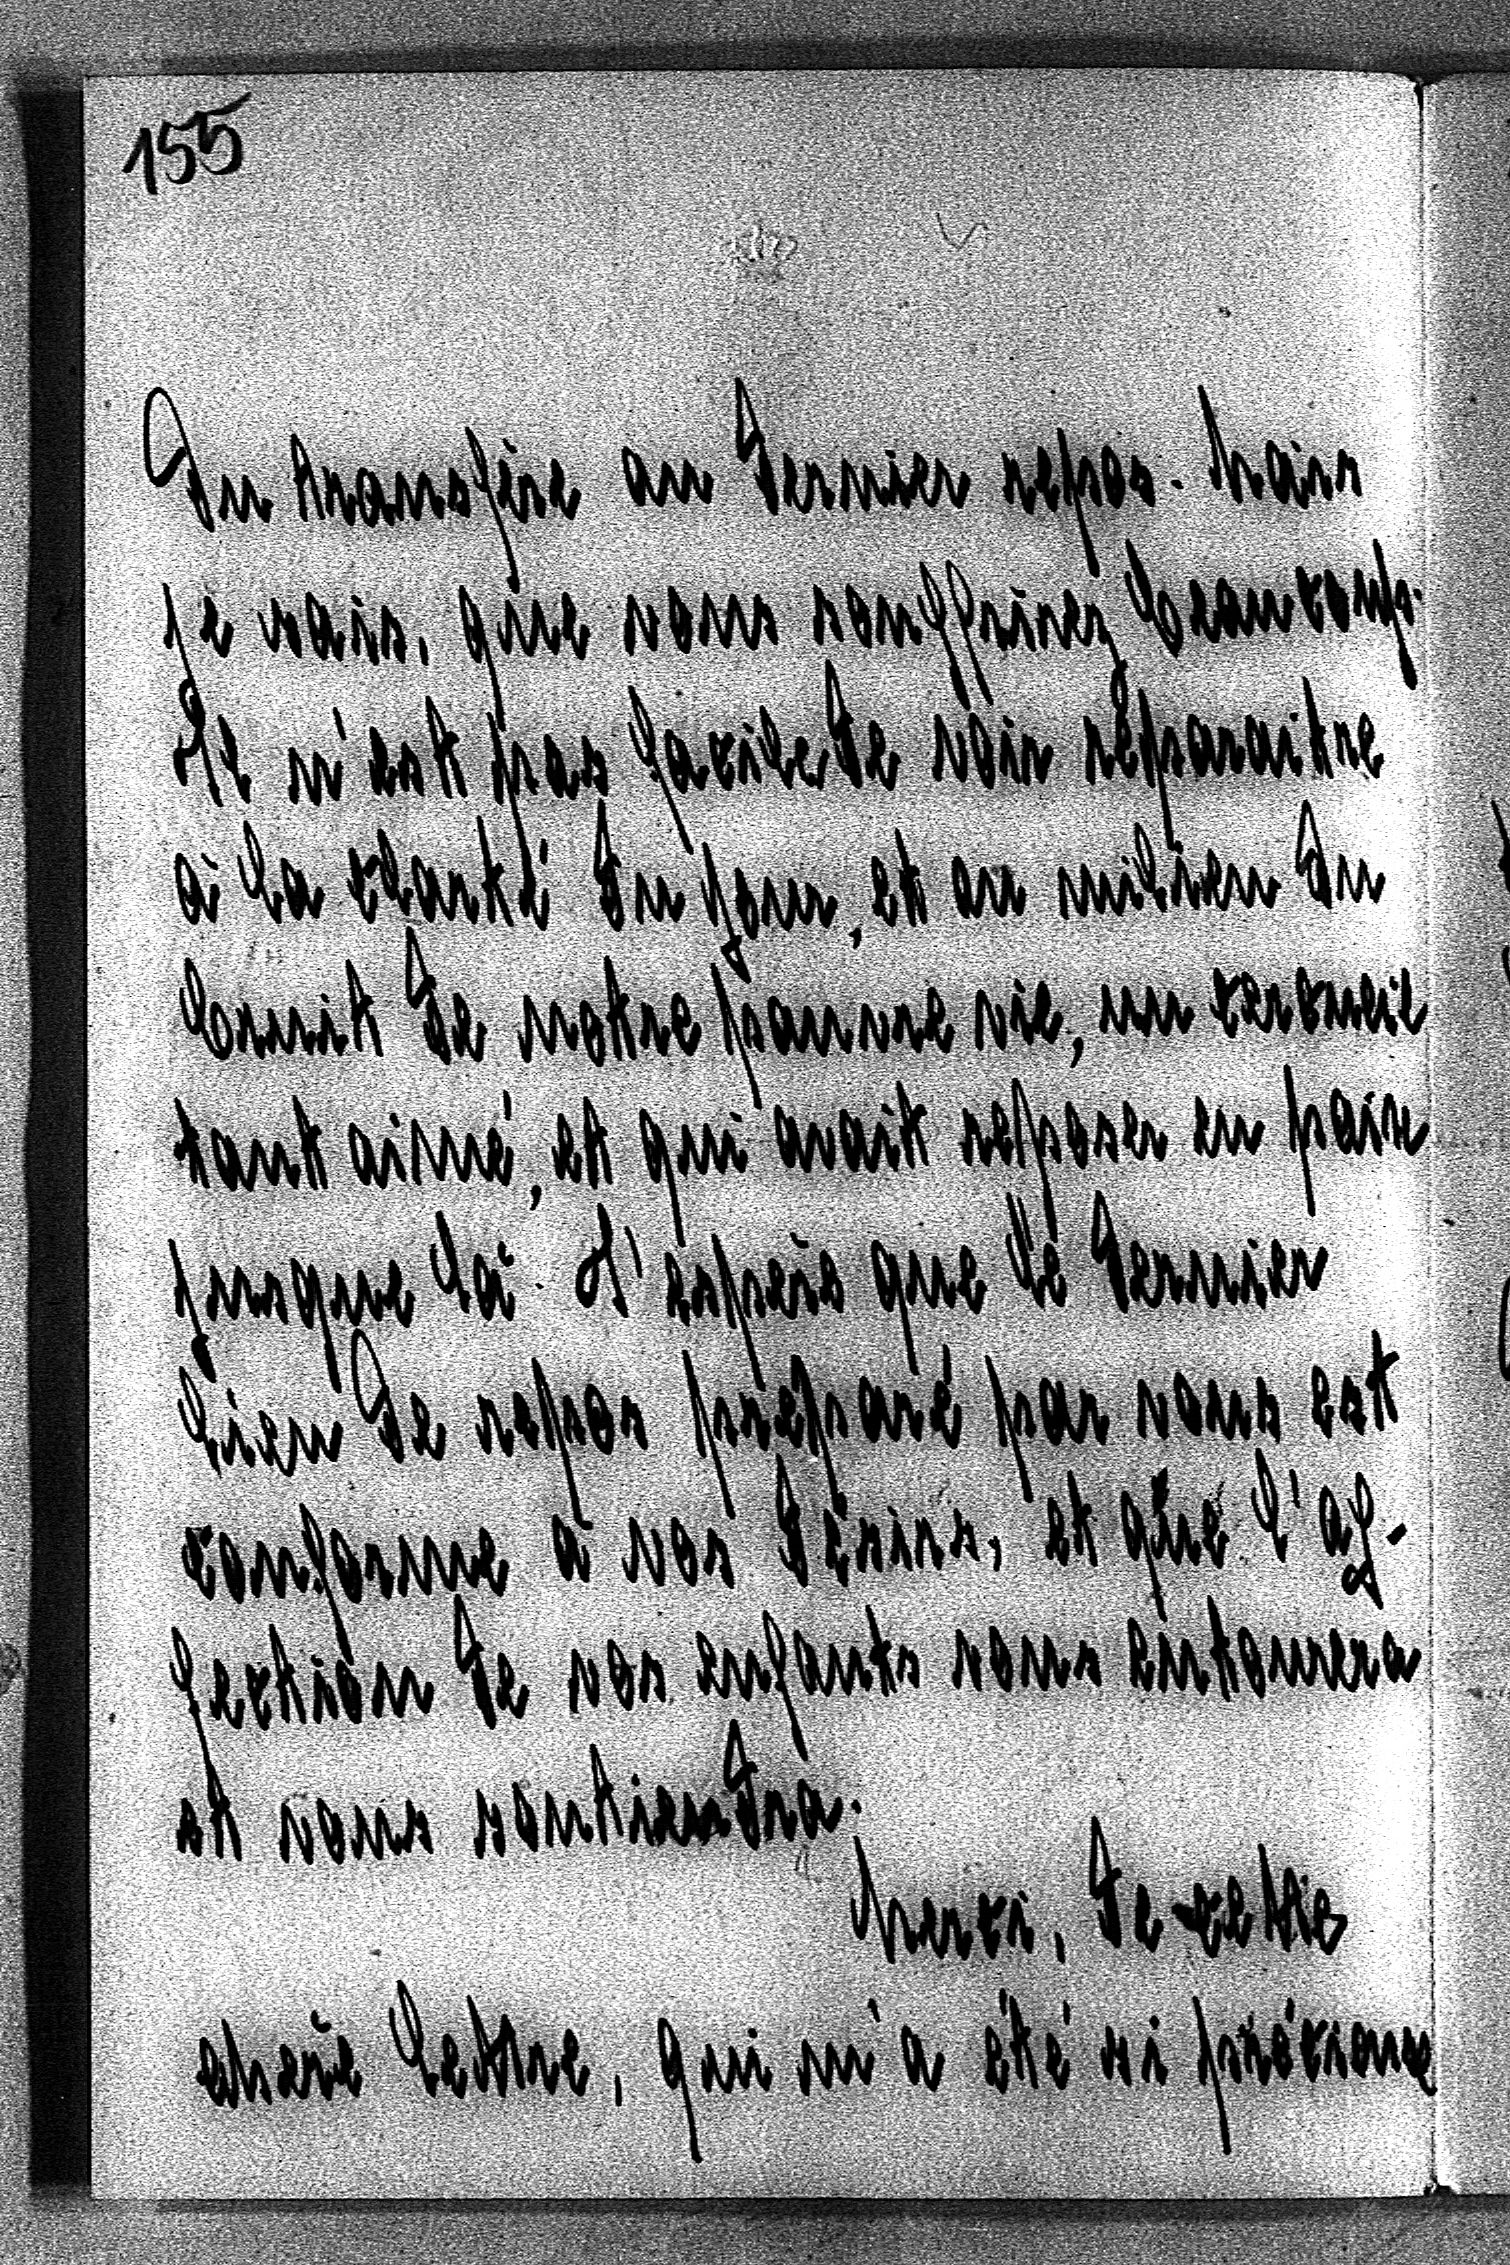 155
du transfère au dernier repos. Mais
je vois, que vous souffrirez beaucoup.
Il n'est pas facile de voir reparaitre
à la clarté du jour, et au milieu du
bruit de notre pauvre vie, un cercueil
tant aimé, et qui avait reposer en paix
jusque là. J'espère que le dernier
lieu de repos préparé par vous est
conforme à vos désirs, et que l'af-
fection de vos enfants vous entourera
et vous soutiendra.
Merci, de cette
chère lettre, qui m'a été si précieuse